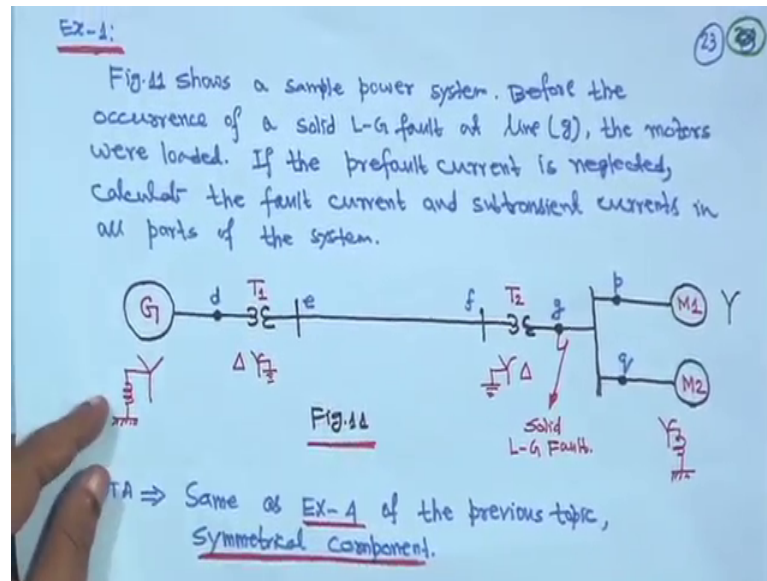 Ex-1:
23
Fig.11 shows a sample power system. Before the
occurrence of a solid L-G fault at line (g), the motors
were loaded. If the prefault current is neglected,
calculat the fault current and subtransient currents in
all parts of the system.
G
d
T1
e
f
T2
g
p
M1
q
M2
Y
Δ Y
Y Δ
Y
Y
Y
Fig.11
Solid
L-G Fault.
TA ⇒ Same as EX-4 of the previous topic,
Symmetrical Component.